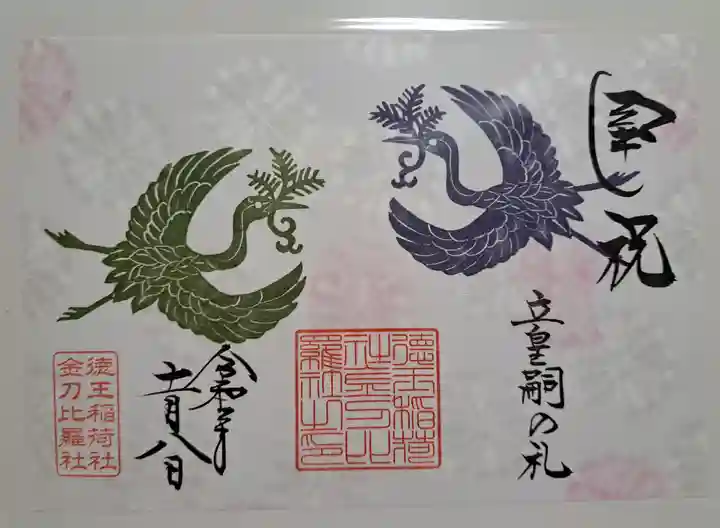 奉祝
立皇嗣の礼
徳王稲荷
社金刀比
羅神社之印
令和二年
十一月八日
徳王稲荷社
金刀比羅社